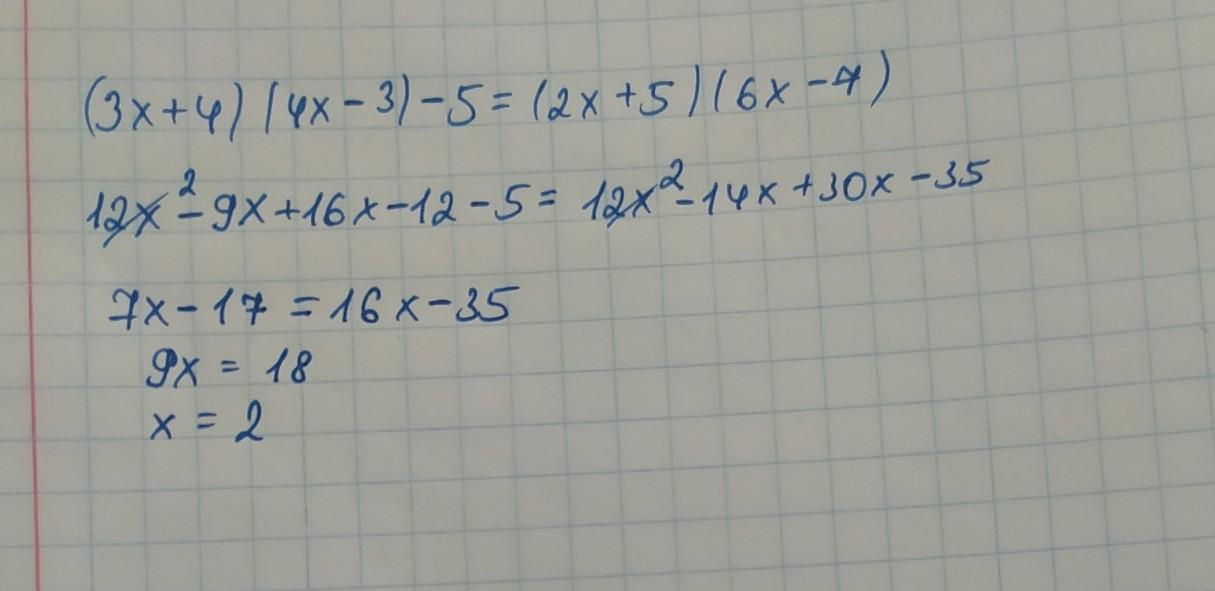 (3x+4)(4x-3)-5=(2x+5)(6x-7)
12x²-9x+16x-12-5=12x²-14x+30x-35
7x-17=16x-35
9x=18
x=2